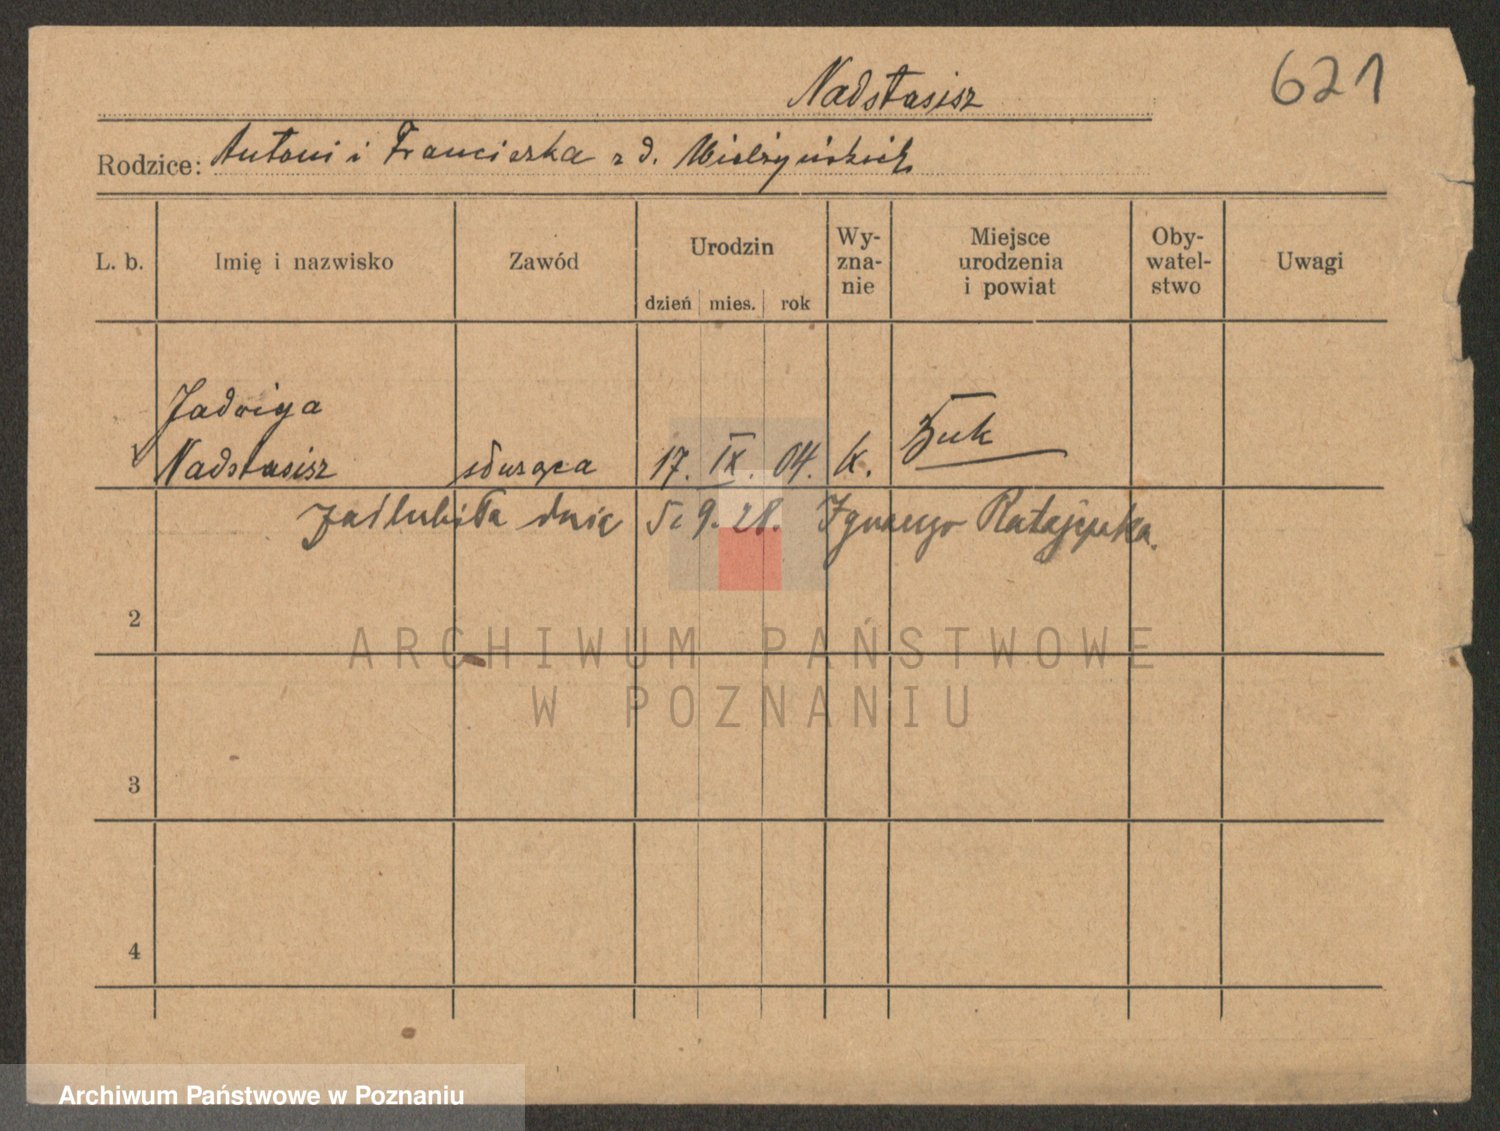 Nadstasisz
621
Rodzice: Antoni i Franciszka z d.
L. b. Imię i nazwisko Zawód Urodzin dzień mies. rok Wy-zna-nie Miejsce urodzenia i powiat Oby-watel-stwo Uwagi
Jadwiga
Nadstasisz służąca 17. IX. 04. k. Buk
zaślubiła dnia 5. 9. 28. Ignacego Ratajczaka.
2
3
4
ARCHIWUM PAŃSTWOWE
W POZNANIU
Archiwum Państwowe w Poznaniu